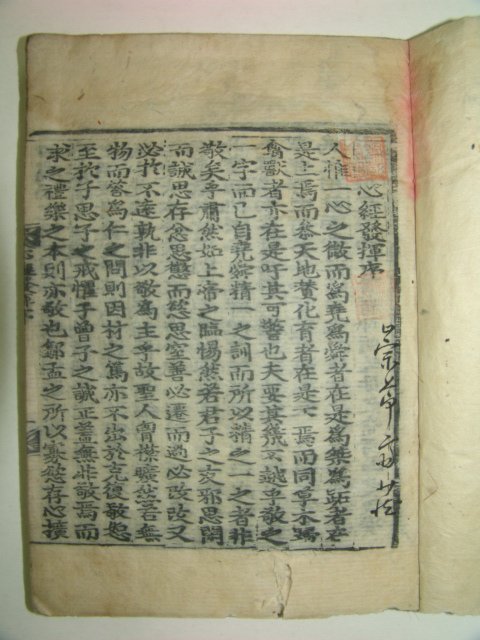 心經發揮序
人惟一心之微而爲堯爲舜者在是爲桀爲跖者在
是上焉而參天地贊化育者在是下焉而同草木歸
禽獸者亦在是吁其可警也夫要其幾不越乎敬之
一字而已自堯舜精一之訓而所以精之一之者非
敬矣乎肅然如上帝之臨惕然若君子之友邪思閑
而誠思存忿思懲而慾思窒善必遷而過必改改又
必於不遠孰非以敬爲主乎故聖人胷襟曠然若無
物而答爲仁之問則因材之篤亦不出於克復敬恕
至於子思子之戒懼子曾子之誠正蓋無非敬焉而
求之禮樂之本則亦敬也鄒孟之所以寡慾存心擴